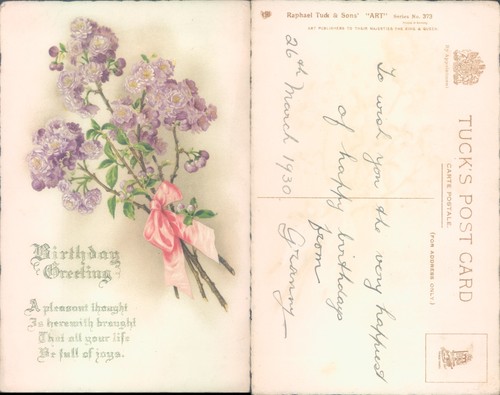 Birthday
Greeting
A pleasant thought
Is herewith brought
That all your life
Be full of joys.
Raphael Tuck & Sons' "ART" Series No. 373
ART PUBLISHERS TO THEIR MAJESTIES THE KING & QUEEN.
By Appointment.
TUCK'S POST CARD
CARTE POSTALE.
(FOR ADDRESS ONLY.)
26th March 1930.
To wish you the very happiest
of happy birthdays
from
Granny